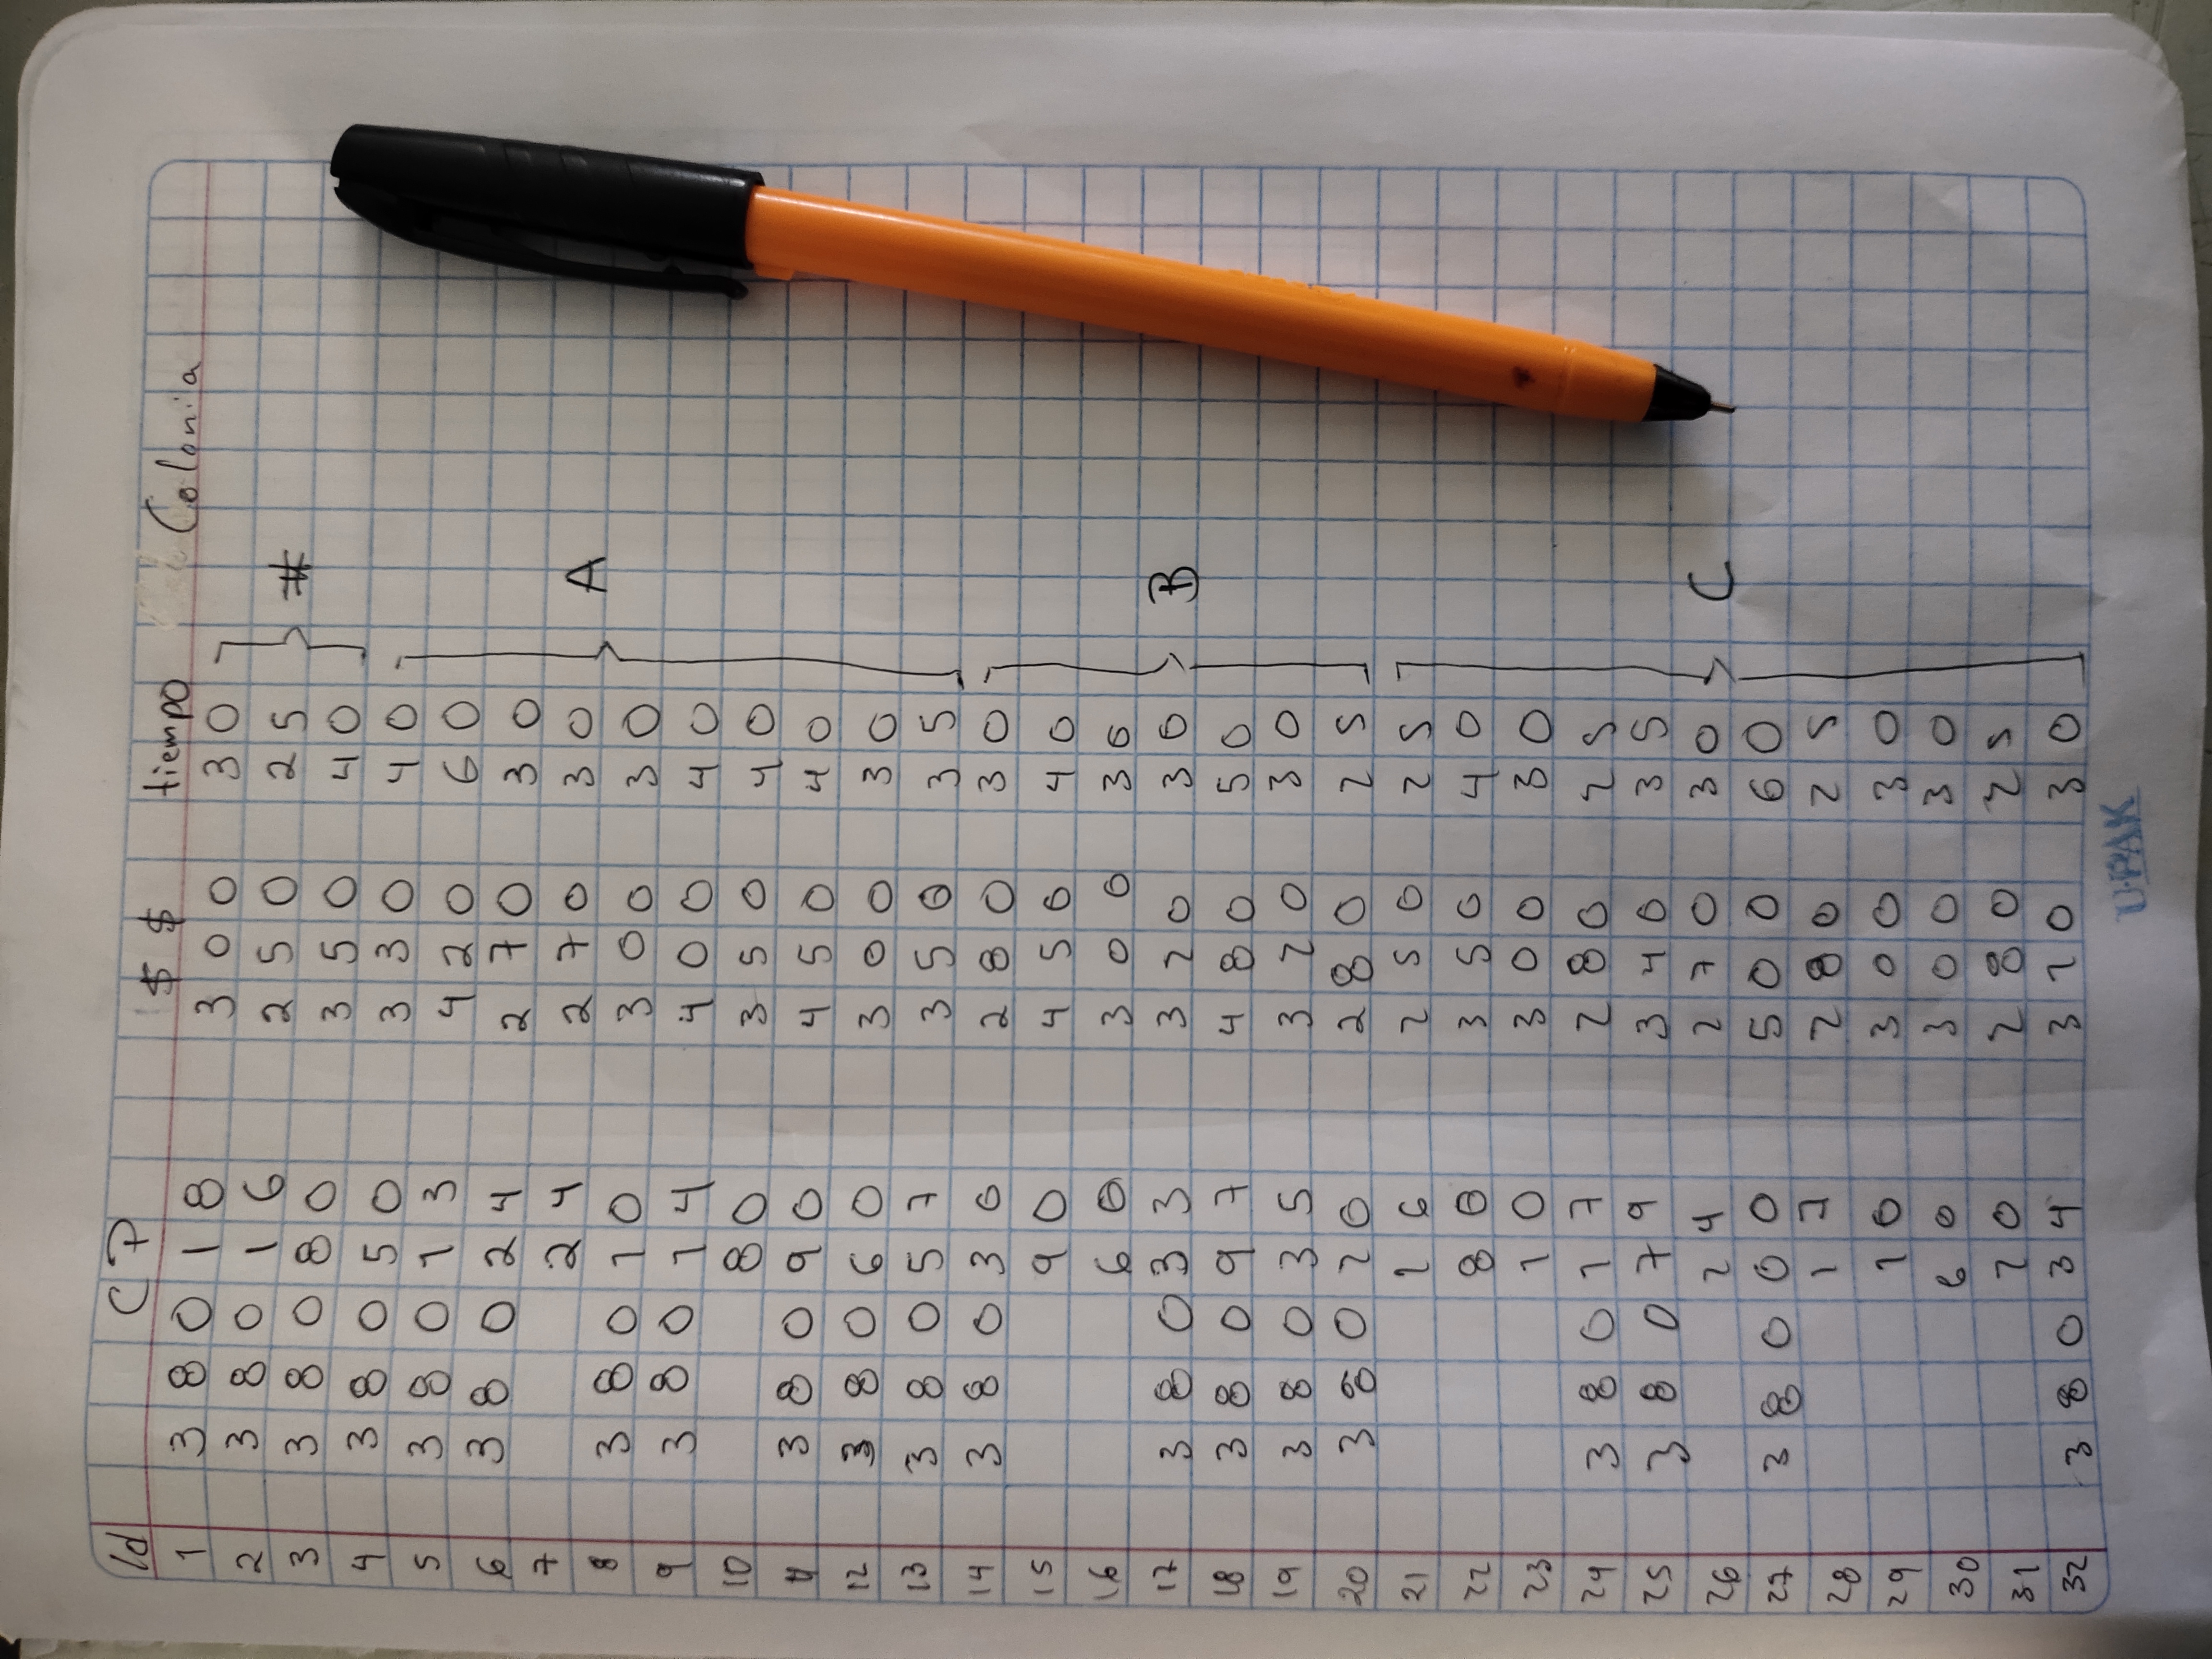 Id CP $$ tiempo Colonia
1 38018 300 30
2 38016 250 25 #
3 38080 350 40
4 38050 330 40
5 38013 420 60
6 38024 270 30
7 24 270 30 A
8 38010 300 30
9 38014 400 40
10 80 350 40
11 38090 450 40
12 38060 300 30
13 38057 350 35
14 38030 280 30
15 90 450 40
16 60 300 30
17 38033 320 30 B
18 38097 480 50
19 38035 320 30
20 38020 280 25
21 26 250 25
22 80 350 40
23 10 300 30
24 38017 280 25
25 38079 340 35
26 24 270 30 C
27 38000 500 60
28 17 280 25
29 10 300 30
30 60 300 30
31 20 280 25
32 38034 320 30
UPAK